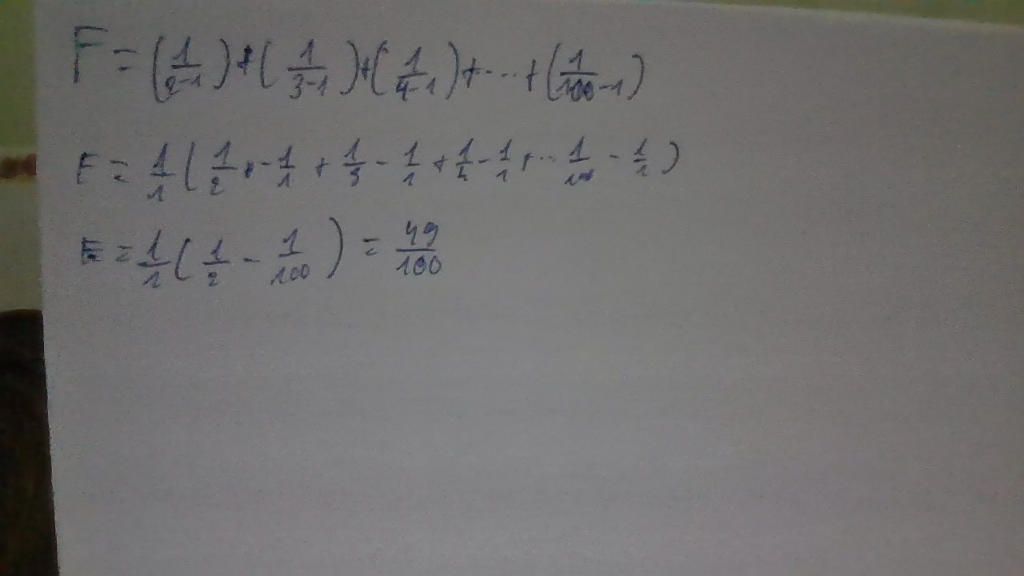 F = (1/2-1) + (1/3-1) + (1/4-1) + ... + (1/100-1)
F = 1/1 (1/2 - 1/1 + 1/3 - 1/1 + 1/4 - 1/1 + ... 1/100 - 1/1)
E = 1/1 (1/2 - 1/100) = 49/100